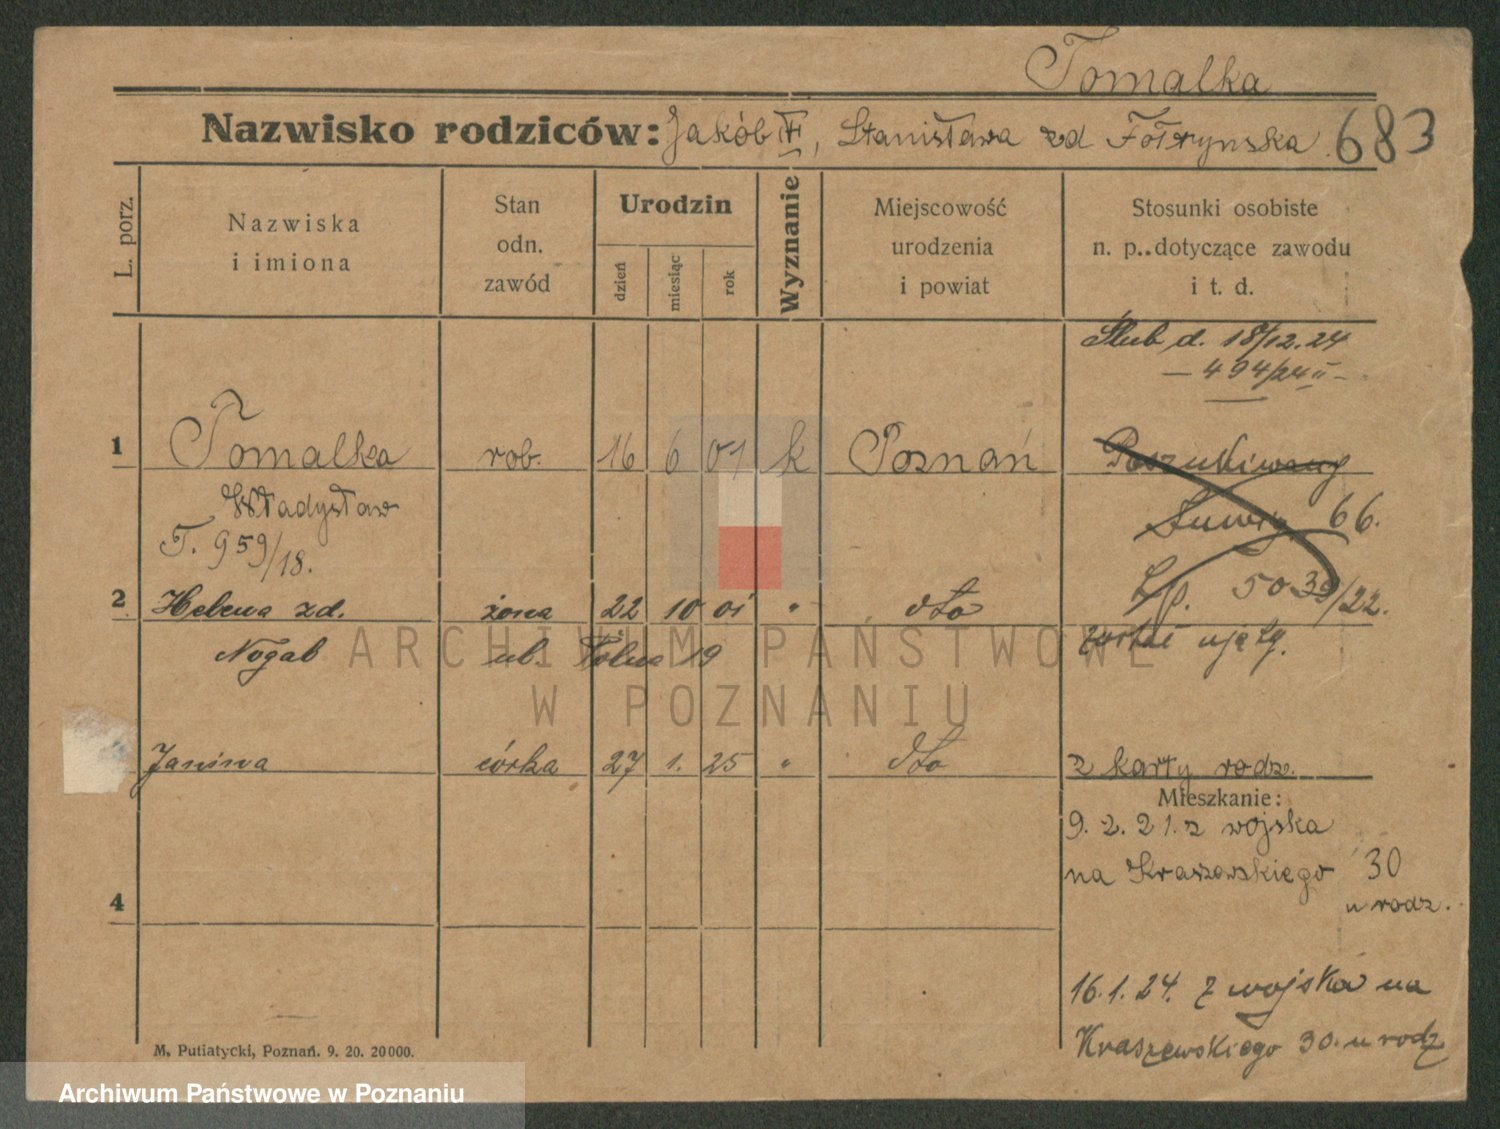 Tomalka
Nazwisko rodziców: Jakób, Stanisława zd 683
L. porz.
Nazwiska i imiona
Stan odn. zawód
Urodzin
dzień miesiąc rok
Wyznanie
Miejscowość urodzenia i powiat
Stosunki osobiste n. p. dotyczące zawodu i t. d.
Ślub d. 18/12.24
— 494/24 II —
1 Tomalka rob. 16 6 01 k Poznań Poszukiwany
Władysław 66.
T. 959/18.
2 Helena zd. żona 22 10 01 " dto L.p. 5039/22.
Nogab ul. 19 został ujęty.
Janina córka 27 1. 25 " dto z karty rodz.
Mieszkanie:
9. 2. 21. z wojska
na Kraszewskiego 30
u rodz.
4
16.1.24. z wojska na
Kraszewskiego 30. u rodz
M. Putiatycki, Poznań. 9. 20. 20000.
ARCHIWUM PAŃSTWOWE
W POZNANIU
Archiwum Państwowe w Poznaniu